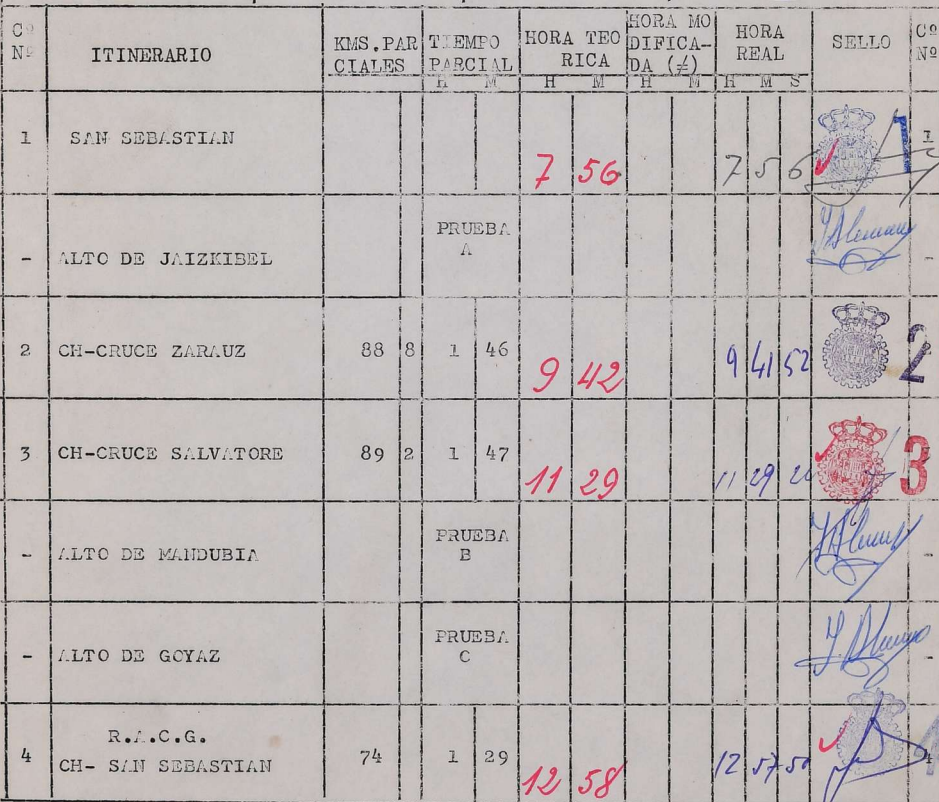 Cº Nº ITINERARIO KMS.PARCIALES TIEMPO PARCIAL H M HORA TEORICA H M HORA MODIFICADA (≠) H M HORA REAL H M S SELLO Cº Nº
1 SAN SEBASTIAN 7 56 7 5 6 1
- ALTO DE JAIZKIBEL PRUEBA A -
2 CH-CRUCE ZARAUZ 88 8 1 46 9 42 9 41 52 2
3 CH-CRUCE SALVATORE 89 2 1 47 11 29 11 29 3
- ALTO DE MANDUBIA PRUEBA B -
- ALTO DE GOYAZ PRUEBA C -
4 R.A.C.G.
CH- SAN SEBASTIAN 74 1 29 12 58 12 57 4